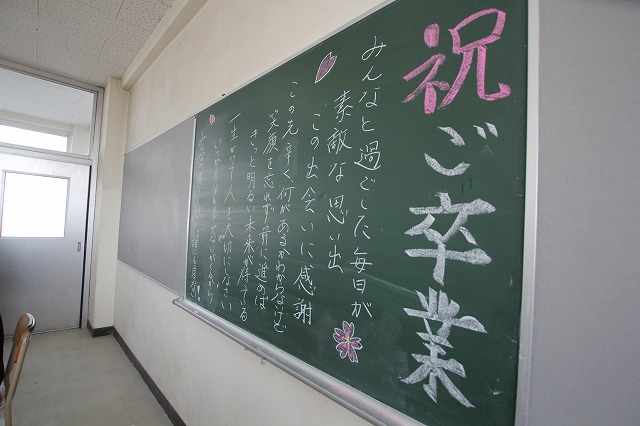 祝ご卒業
みんなと過ごした毎日が
素敵な思い出
この出会いに感謝
この先辛く何があるかわからないけど
笑顔を忘れず前に進めば
きっと明るい未来が待ってる
一生かけて人を大切にしなさい